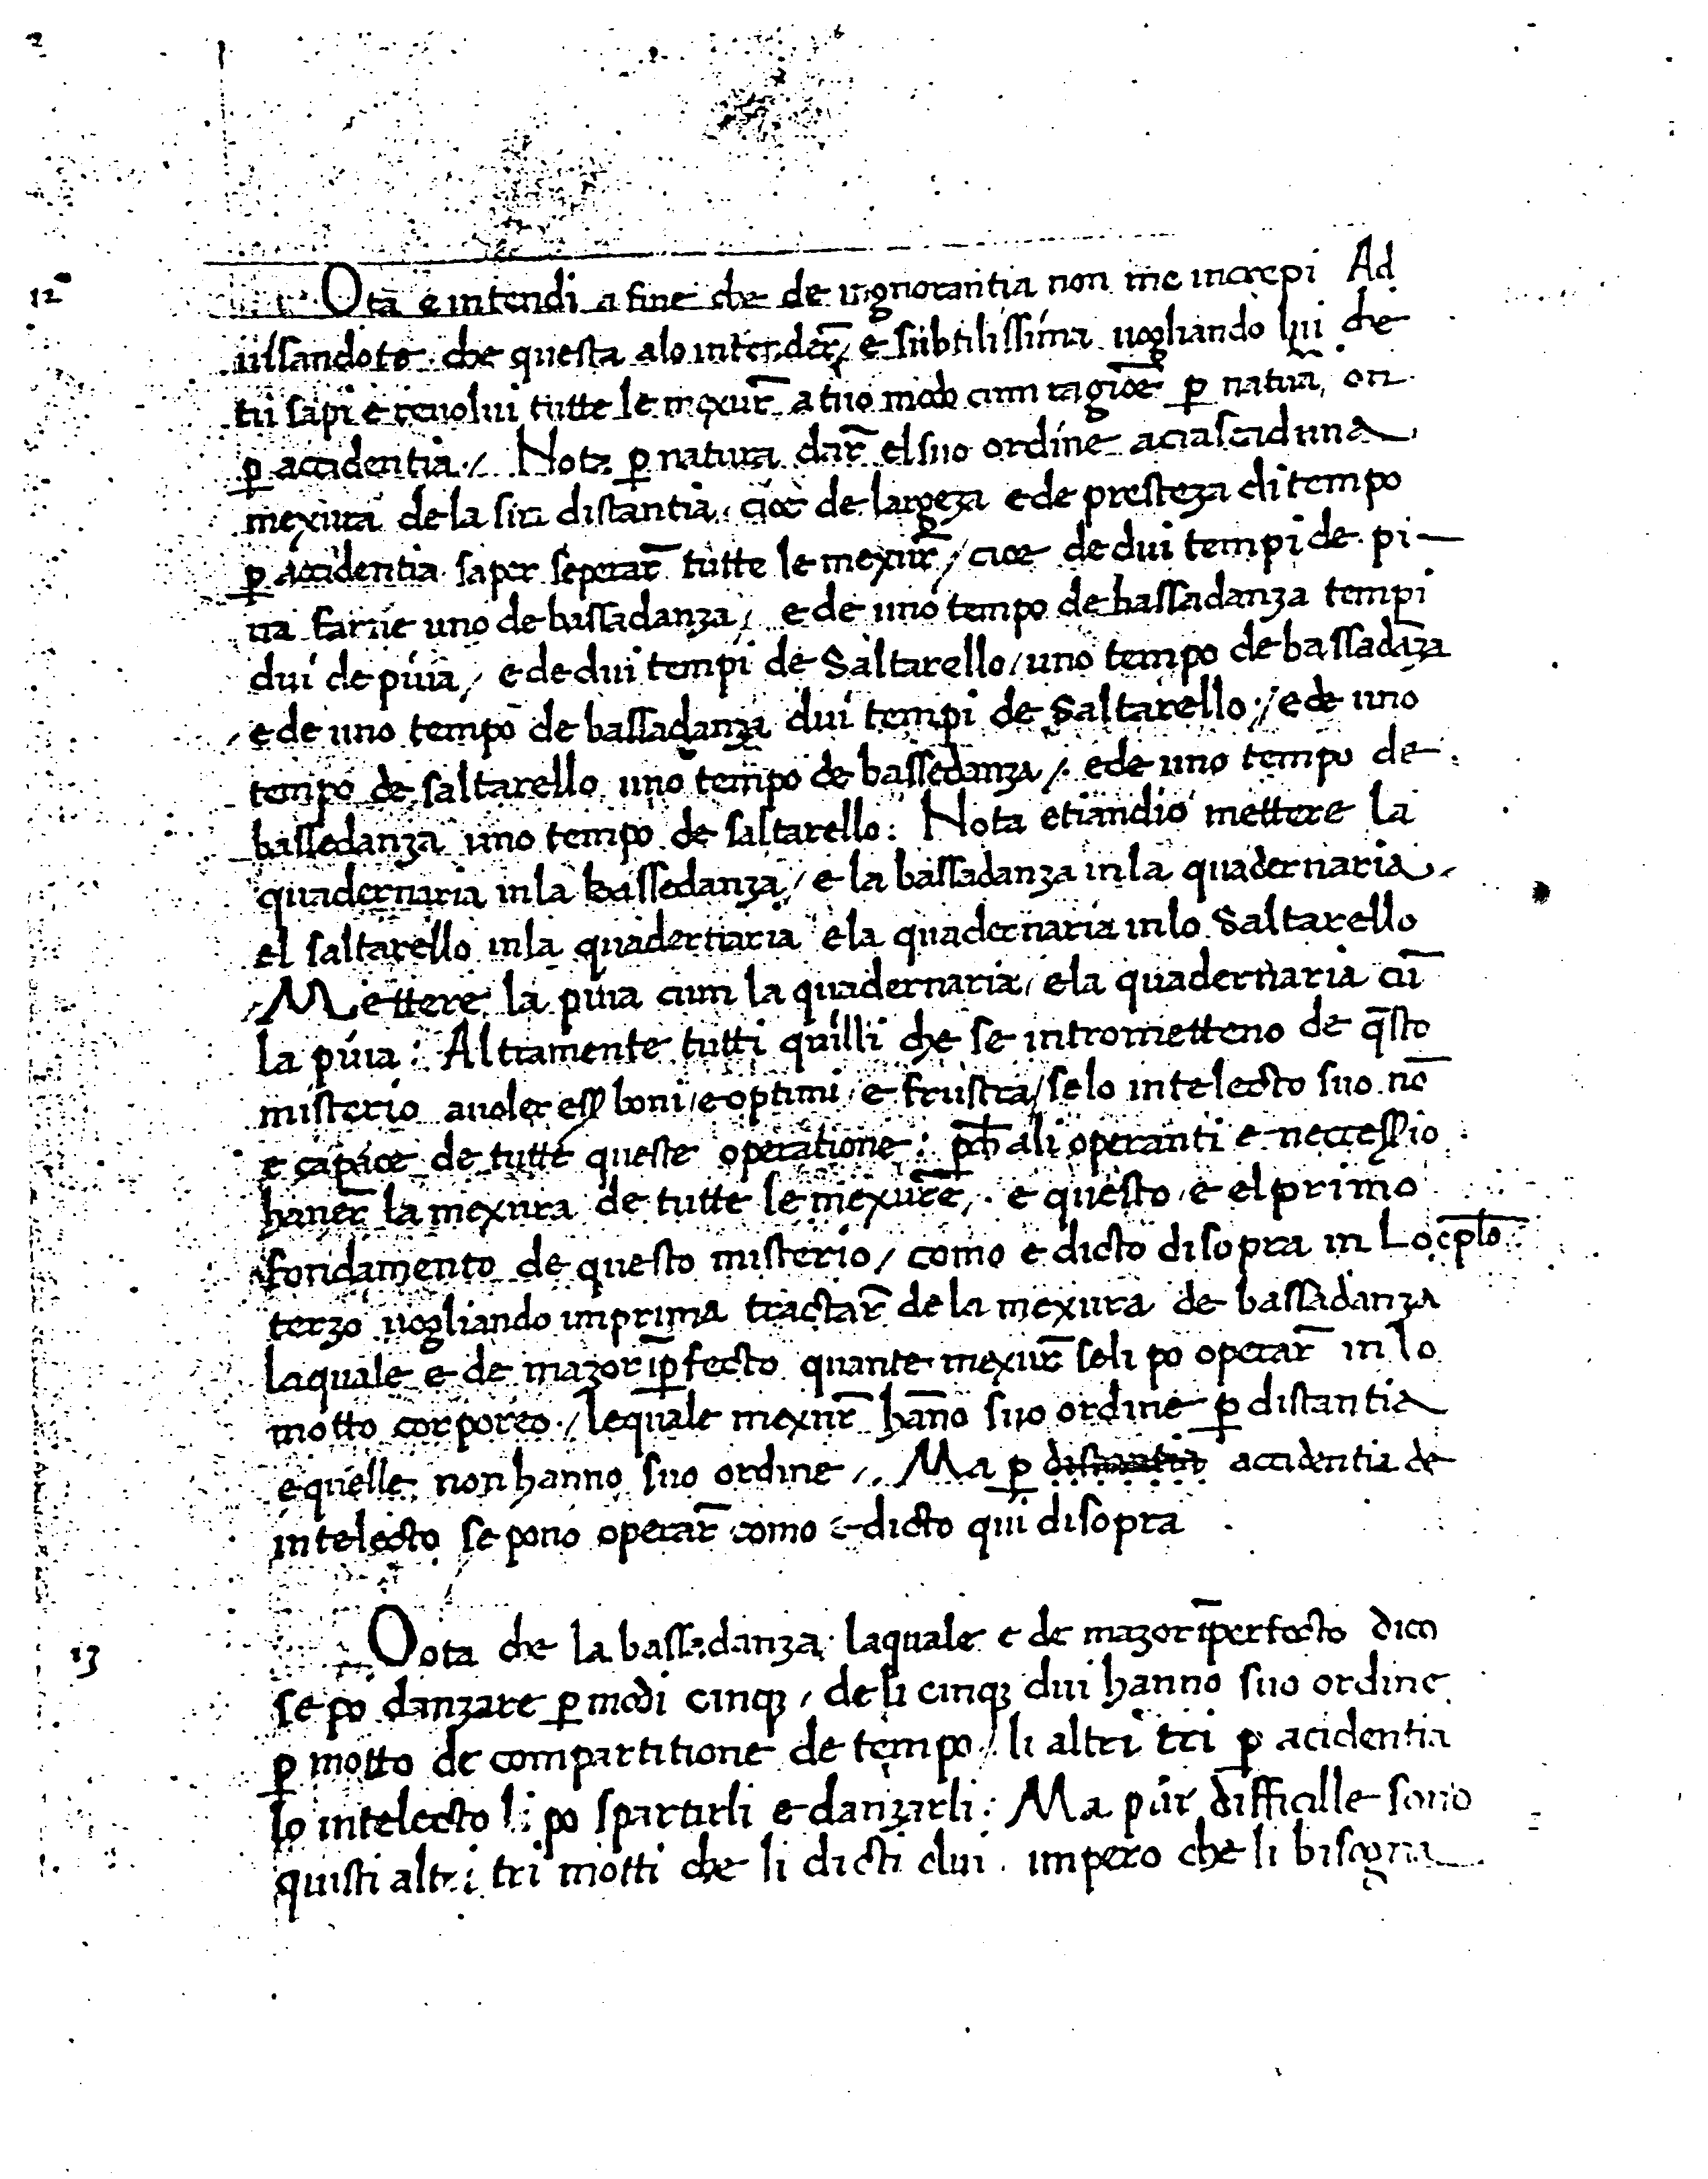 12
Ota e intendi a fine che de ingnorantia non me increpi Ad
uisandote che questa alo intender̄ / e subtilissima uogliando lui che
tu sapi e reuolui tutte le mexur̄ a tuo modo cum ragiōe ꝑ natura, on
ꝑ accidentia / Nota ꝑ natura dar̄ el suo ordine aciascaduna
mexura de la sua distantia, cioe de largeza e de presteza di tempo
ꝑ accidentia saper seperar̄ tutte le mexur̄ / cioe de dui tempi de pi-
ua farne uno de bassadanza / e de uno tempo de bassadanza tempi
dui de piuia / e de dui tempi de Saltarello / uno tempo de bassadāza
e de uno tempo de bassadanza dui tempi de Saltarello: / e de uno
tempo de saltarello uno tempo de bassedanza / . e de uno tempo de
bassedanza uno tempo de saltarello: Nota etiandio mettere la
quadernaria in la bassedanza / e la bassadanza in la quadernaria
el saltarello in la quadernaria e la quadernaria in lo Saltarello
Mettere la piuia cum la quadernaria / e la quadernaria cū
la piuia: Altramente tutti quilli che se intrometteno de q̄sto
misterio auoler ess̄ boni / e optimi / e frustra / se lo intelecto suo nō
e capace de tutte queste operatione: ꝑch̄ ali operanti e neccessio
hauer̄ la mexura de tutte le mexurē . e questo / e el primo
fondamento de questo misterio / como e dicto disopra in Lo cp̄lo
terzo uogliando imprima tractar̄ de la mexura de bassadanza
laquale e de mazor īꝑfecto quante mexur̄ se li po operar̄ in lo
motto corporeo / lequale mexur̄ hāno suo ordine ꝑ distantia
e quelle non hanno suo ordine / . Ma ꝑ distantia accidentia de
intelecto se pono operar̄ como e dicto qui disopra
13
Oota che la bassadanza laquale e de mazor īperfecto dico
se po danzare ꝑ modi cinqꝫ / de li cinqꝫ dui hanno suo ordine
ꝑ motto de compartitione de tempo / li altri tri ꝑ acidentia
lo intelecto li po spartirli e danzarli: Ma pur difficille sono
quisti altri tri motti che li dicti dui . impero che li bisogna